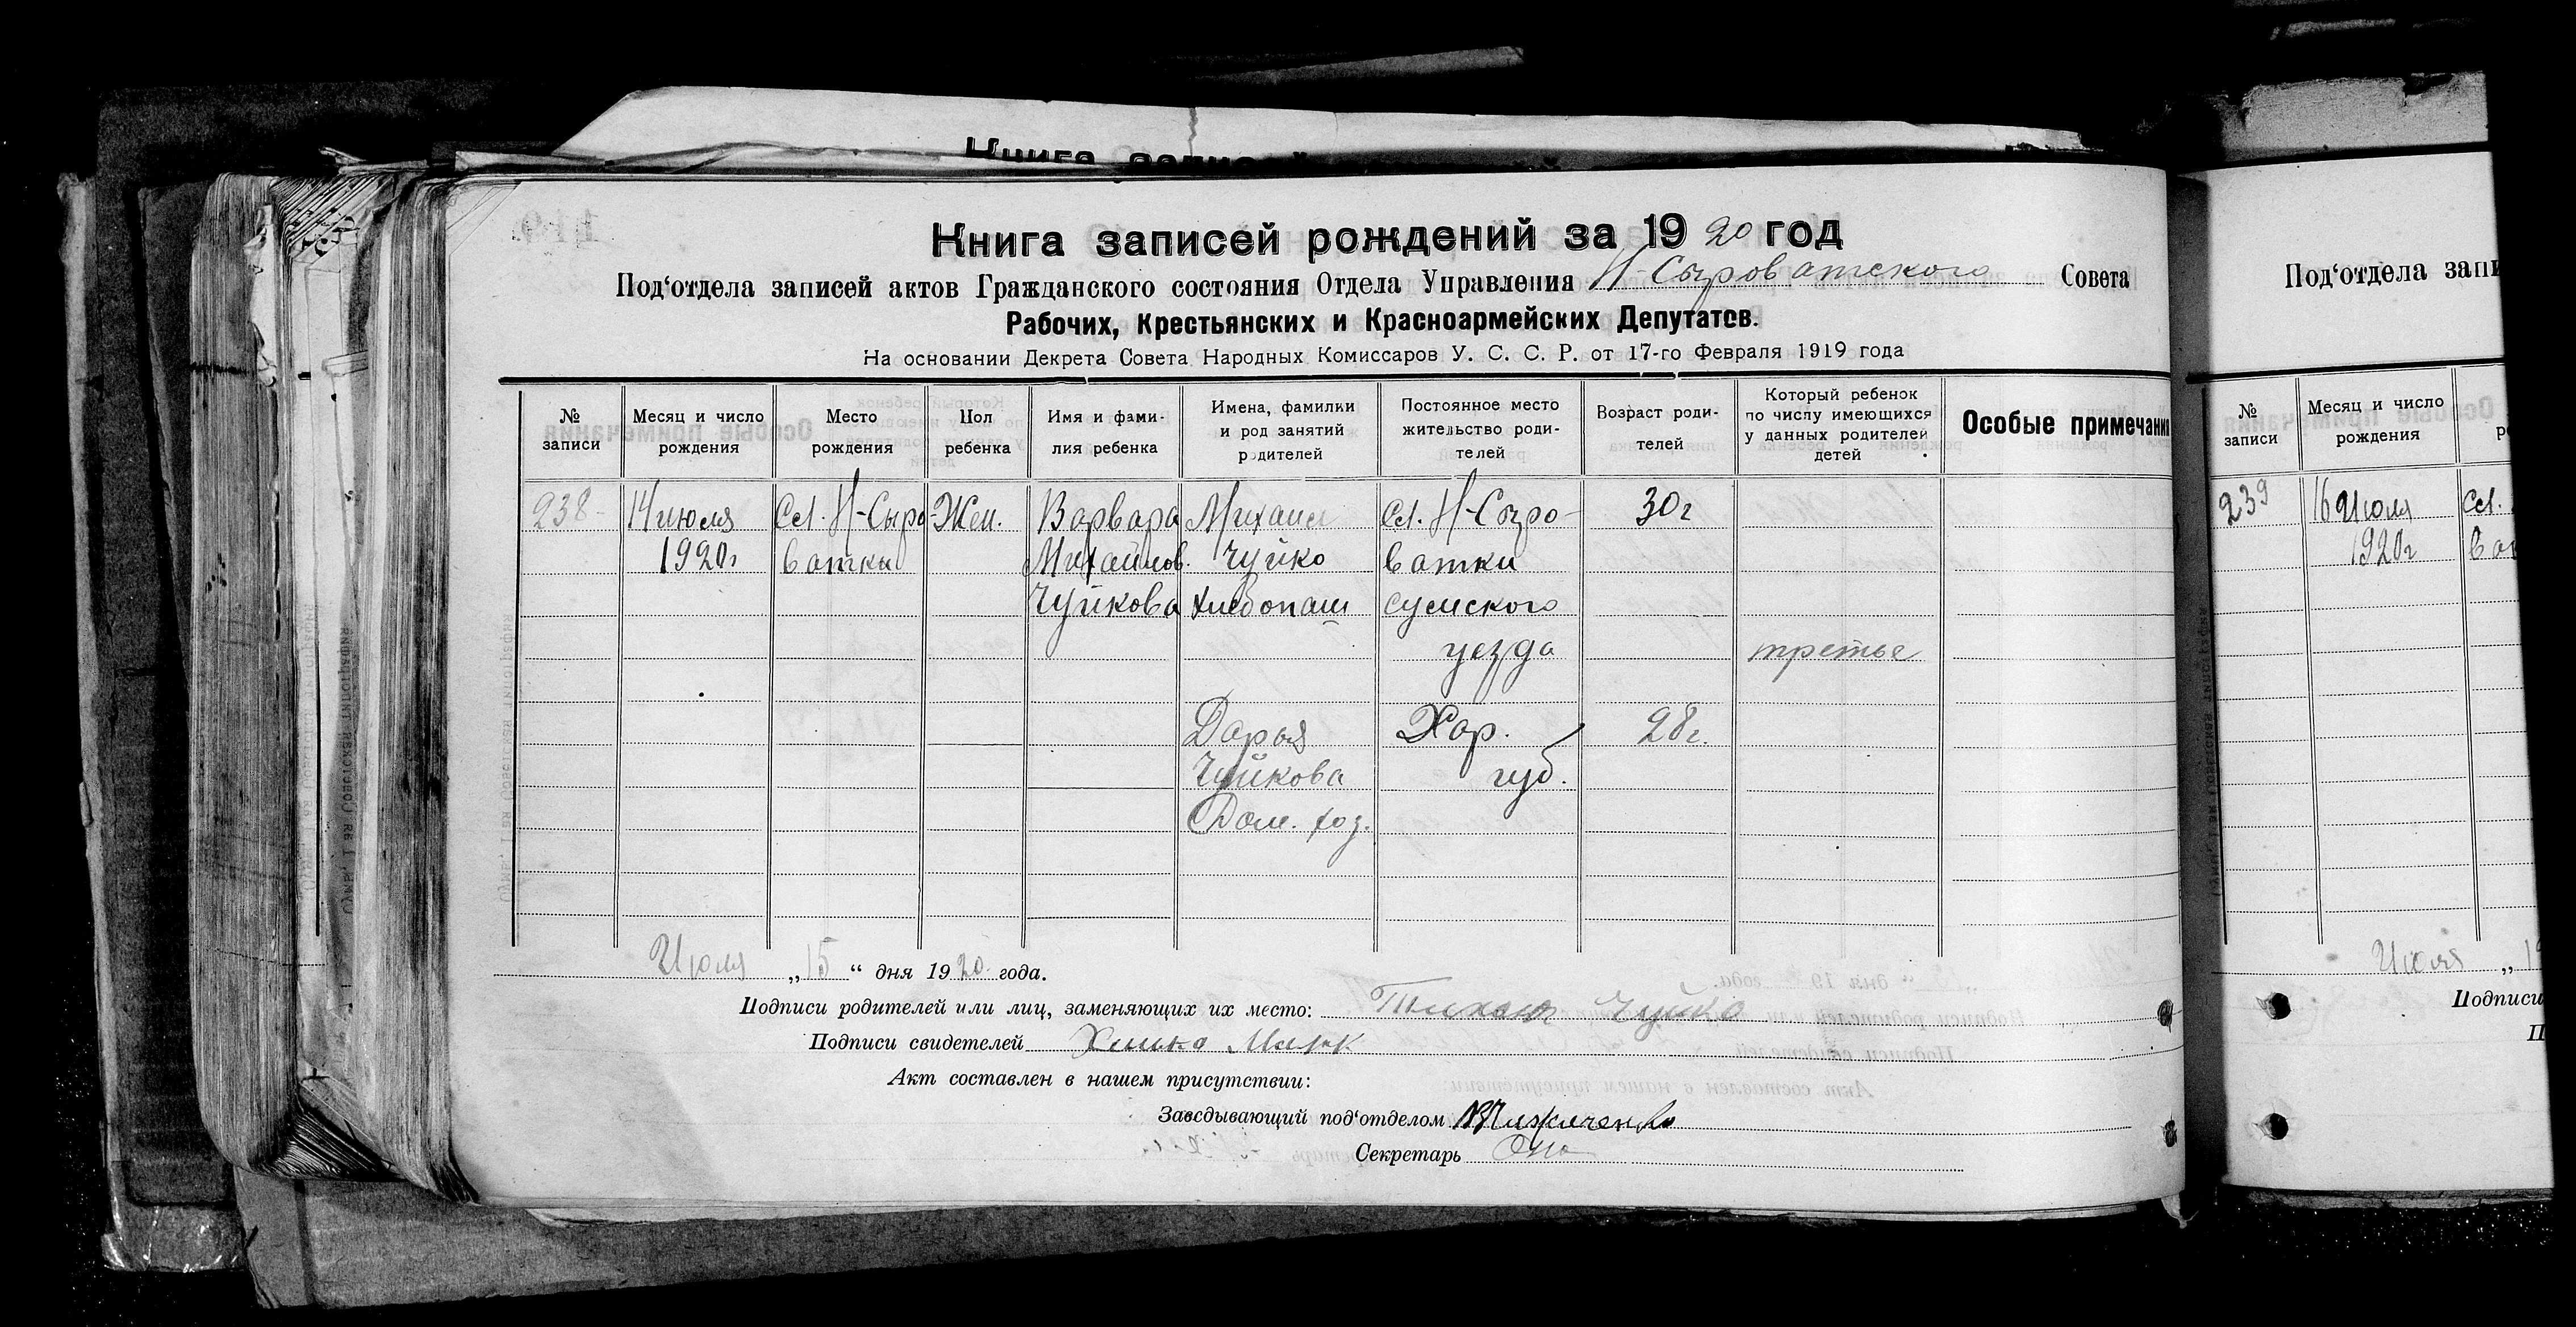 Книга записей рождений за 1920 год
Под‘отдела записей актов Гражданского состояния Отдела Управления Н-Сыроватского Совета
Рабочих, Крестьянских и Красноармейских Депутатов.
На основании Декрета Совета Народных Комиссаров У. С. С. Р. от 17-го Февраля 1919 года
№ записи
Месяц и число рождения
Место рождения
Пол ребенка
Имя и фами-
лия ребенка
Имена, фамилии
и род занятий
родителей
Постоянное место
жительство роди-
телей
Возраст роди-
телей
Который ребенок
по числу имеющихся
у данных родителей
детей
Особые примечания
238- 14 июля Сл. Н-Сыро- Жен. Варвара Михаил Сл. Н-Сыро- 30 г
1920г ватки Михайлов. Чуйко ватки
Чуйкова хлебопаш Сумского
уезда третье
Дарья Хар. 28 г.
Чуйкова губ.
Дом. хоз.
Июля „15“ дня 1920 года.
Подписи родителей или лиц, заменяющих их место: Тихон Чуйко
Подписи свидетелей Марк
Акт составлен в нашем присутствии:
Заведывающий под‘отделом
Секретарь
Под‘отдела запи
№ записи
Месяц и число рождения
239 16 Июля Сл.
1920г ват
Июля „1
Подписи
П